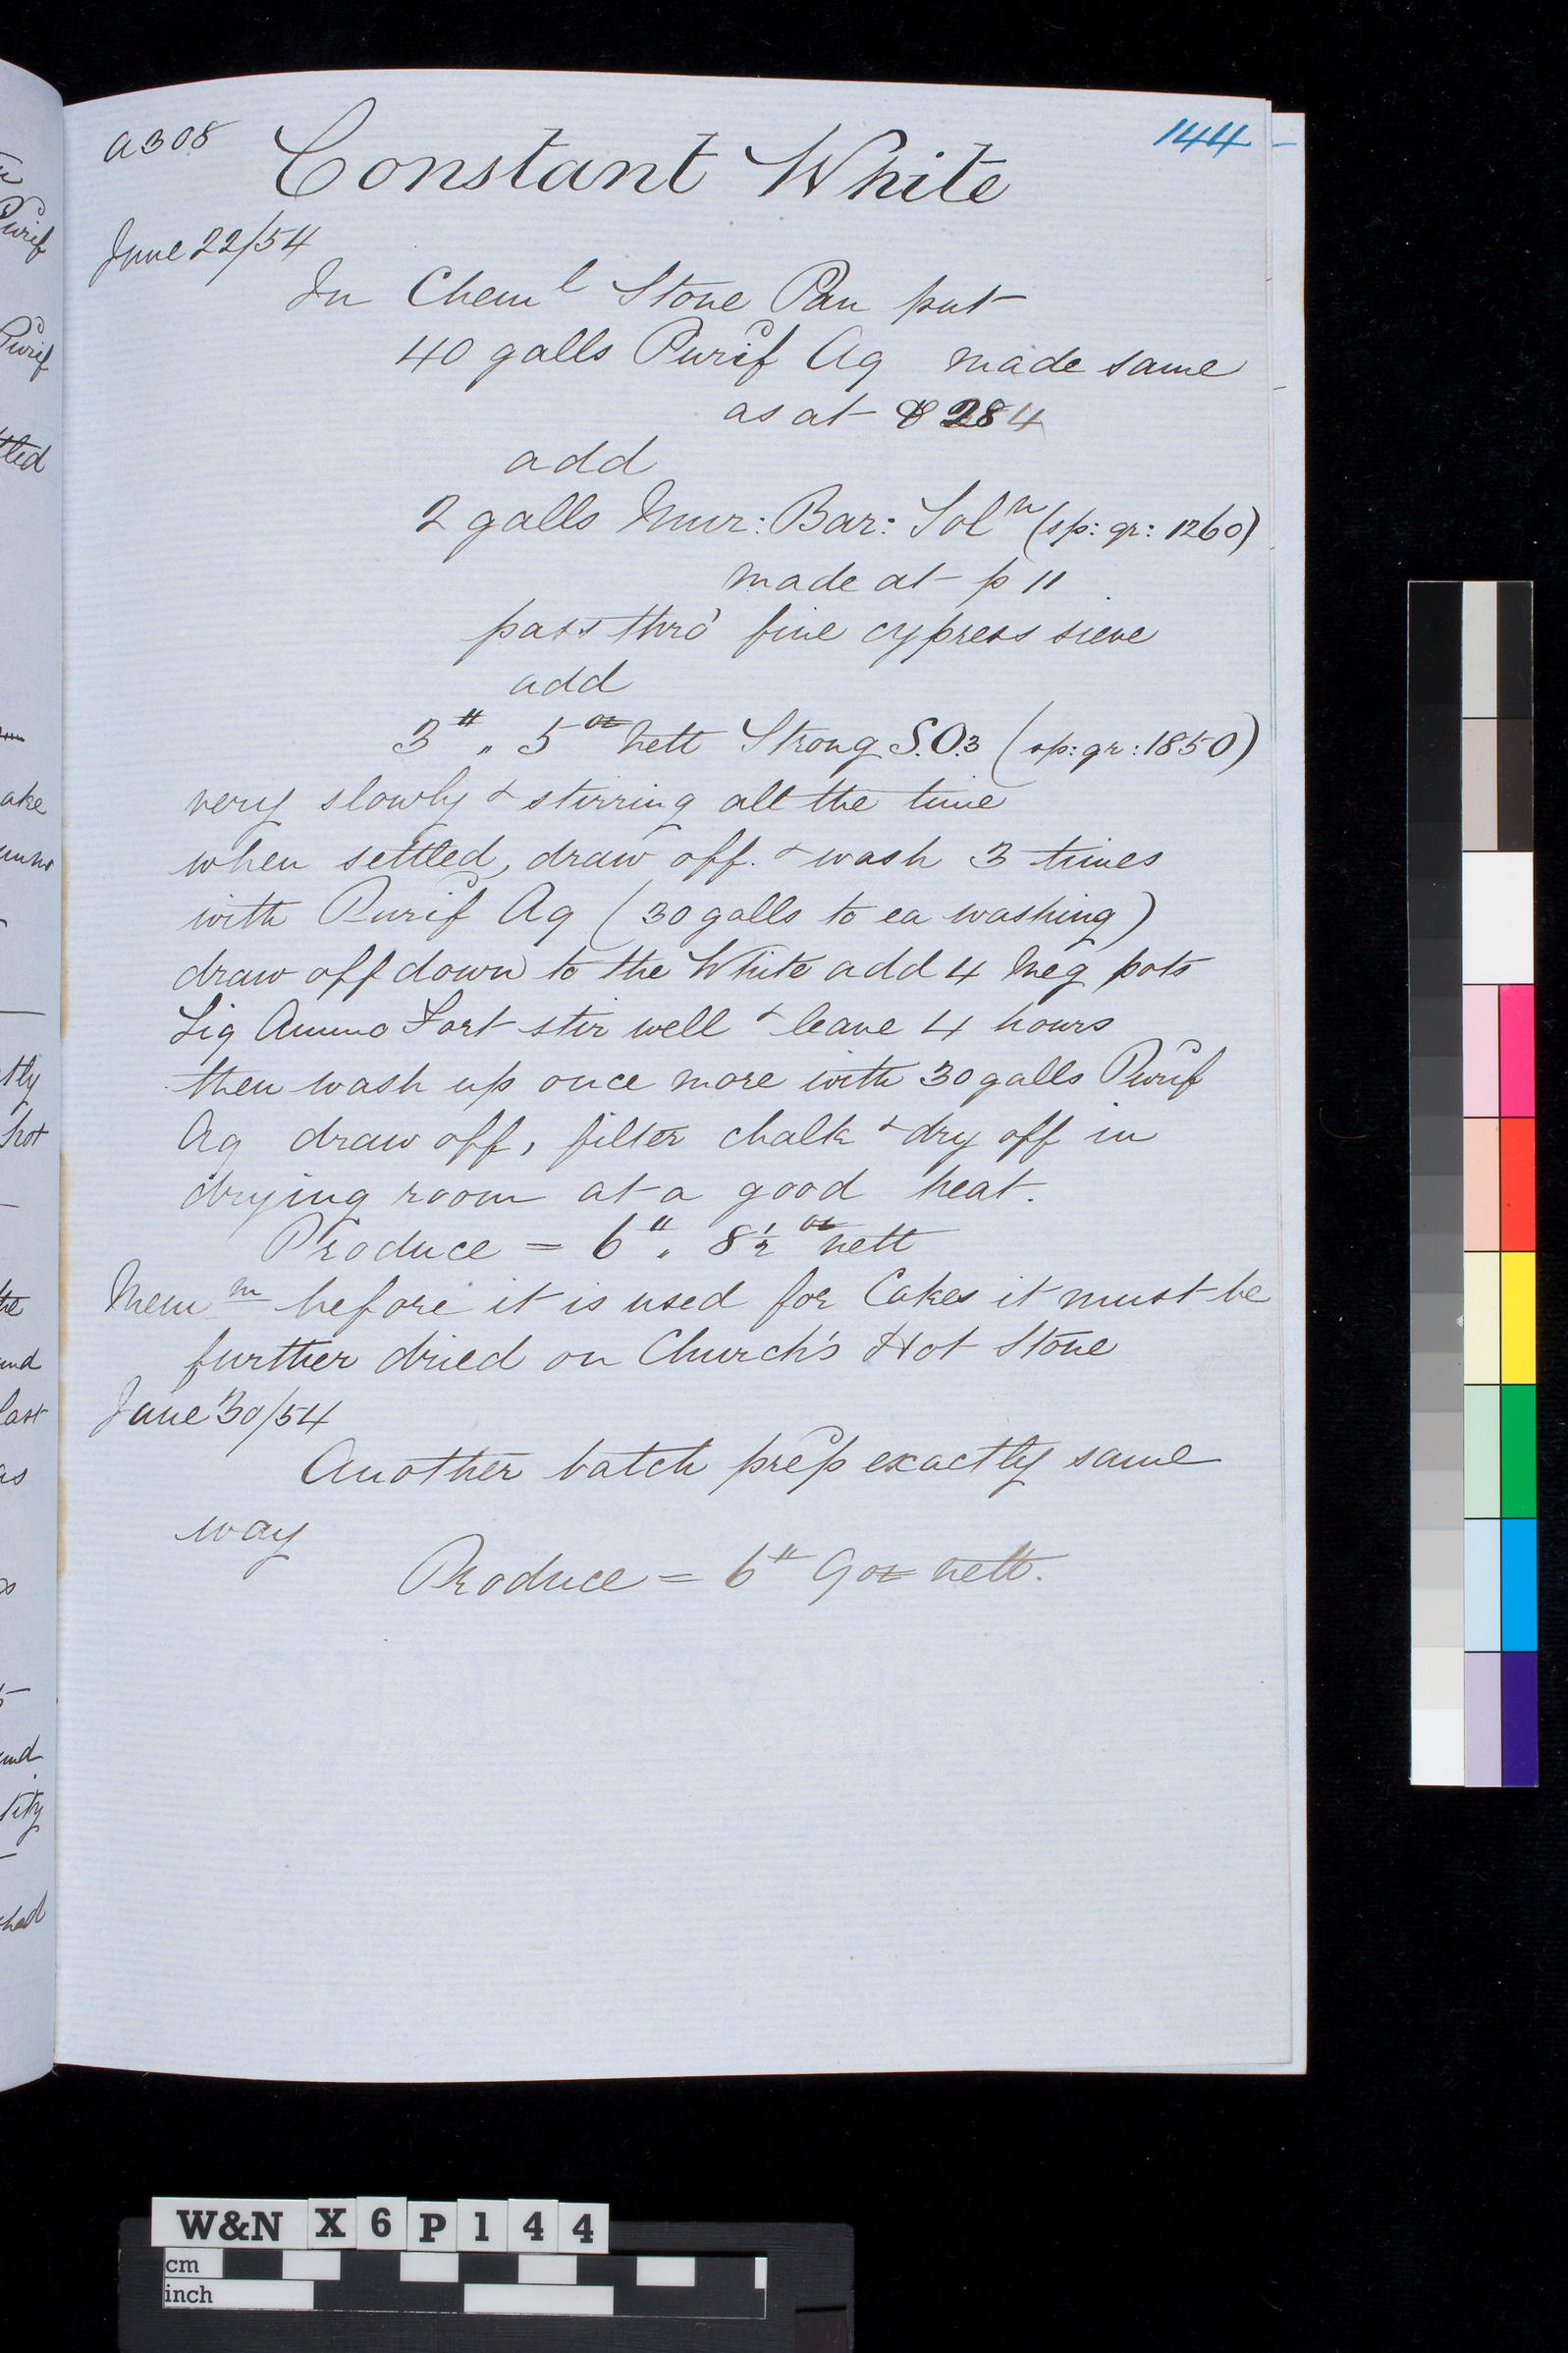 A308 Constant White 144
June 22/54
In Cheml Stone Pan put
40 galls Purif Aq made same
as at 284
add
2 galls Mur: Bar: Soln (sp: gr: 1260)
made at p 11
pass thro' fine cypress sieve
add
3 " 5 oz nett Strong S.O3 (sp: gr: 1850)
very slowly & stirring all the time
when settled, draw off. & wash 3 times
with Purif Aq (30 galls to ea washing)
draw off down to the White add 4 Meg pots
Liq Ammo Fort stir well & leave 4 hours
then wash up once more with 30 galls Purif
Aq draw off, filter chalk & dry off in
drying room at a good heat.
Produce = 6 " 8½ oz nett
Memm before it is used for Cakes it must be
further dried on Church's Hot Stone
June 30/54
Another batch prep exactly same
way
Produce = 6 " 9 oz nett.
W&N X6P144
cm
inch
Purif
Purif
tled
ake
tly
hot
the
und
last
as
tity